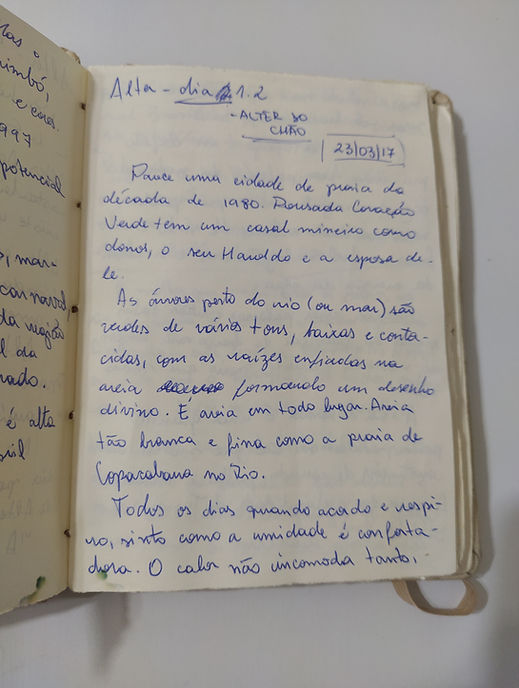 tas o
nimbó,
e cores.
1997
potencial
o, mar-
carnaval,
da região
l da
rado.
é alta
sil
Alter - dia 1.2
- ALTER DO
CHÃO
23/03/17
Parece uma cidade de praia da
década de 1980. Pousada Coração
Verde tem um casal mineiro como
donos, o seu Haroldo e a esposa de-
le.
As árvores perto do rio (ou mar) são
verdes de vários tons, baixas e contor-
cidas, com as raízes enfiadas na
areia formando um desenho
divino. É areia em todo lugar. Areia
tão branca e fina como a praia de
Copacabana no Rio.
Todos os dias quando acordo e respi-
ro, sinto como a umidade é conforta-
dora. O calor não incomoda tanto,